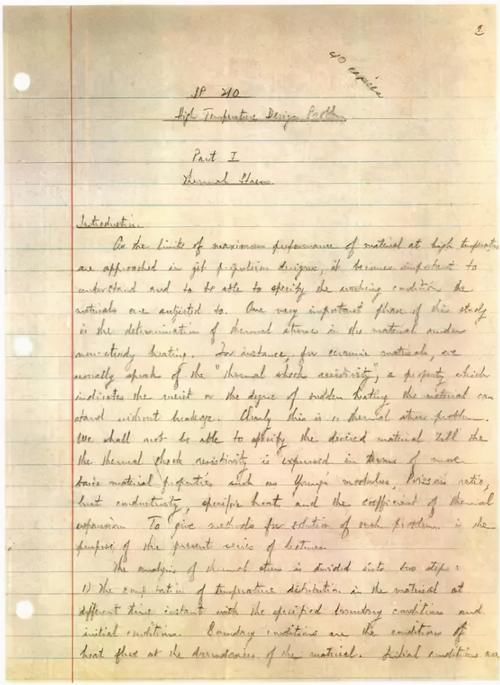 2
40 copies
JP 210
High Temperature Design Problem
Part I
Thermal Stress
Introduction.
As the limits of maximum performance of material at high temperature
are approached in jet propulsion designs, it becomes important to
understand and to be able to specify the working condition the
materials are subjected to. One very important phase of this study
is the determination of thermal stress in the material under
non-steady heating. For instance, for ceramic materials, we
usually speak of the "thermal shock resistivity", a property which
indicates the merit or the degree of sudden heating the material can
stand without breakage. Clearly this is a thermal stress problem.
We shall not be able to specify the desired material till the
the thermal shock resistivity is expressed in terms of more
basic material properties such as Young's modulus, Poisson's ratio,
heat conductivity, specific heat and the coefficient of thermal
expansion. To give methods for solution of such problem is the
purpose of the present series of lectures.
The analysis of thermal stress is divided into two steps:
1) The computation of temperature distribution in the material at
different time instant with the specified boundary conditions and
initial conditions. Boundary conditions are the conditions of
heat flux at the boundaries of the material. Initial conditions are